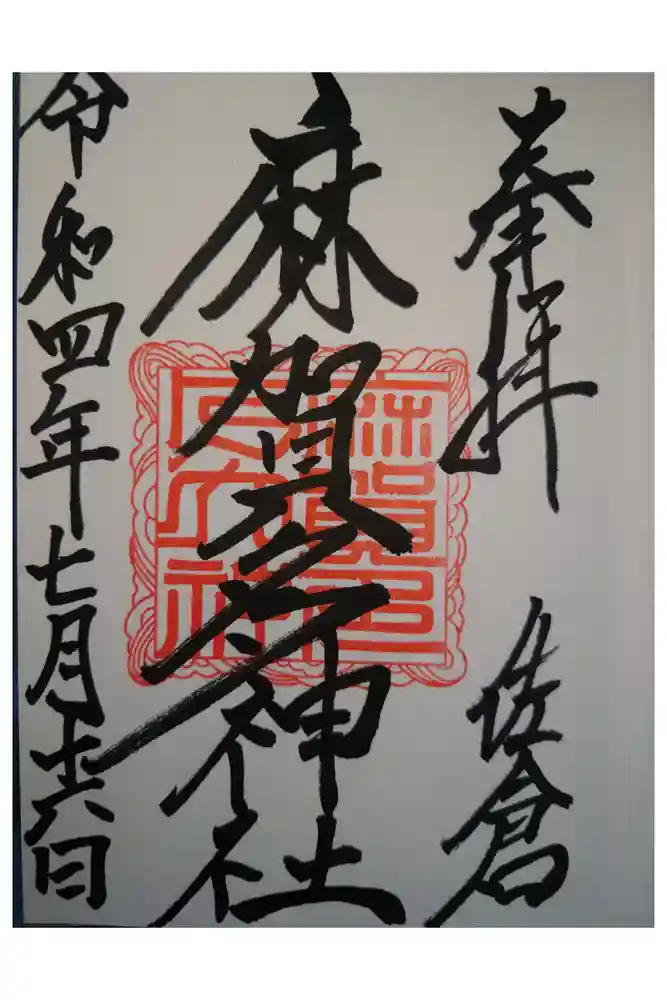 奉拝
佐倉
麻賀多神社
令和四年七月十六日